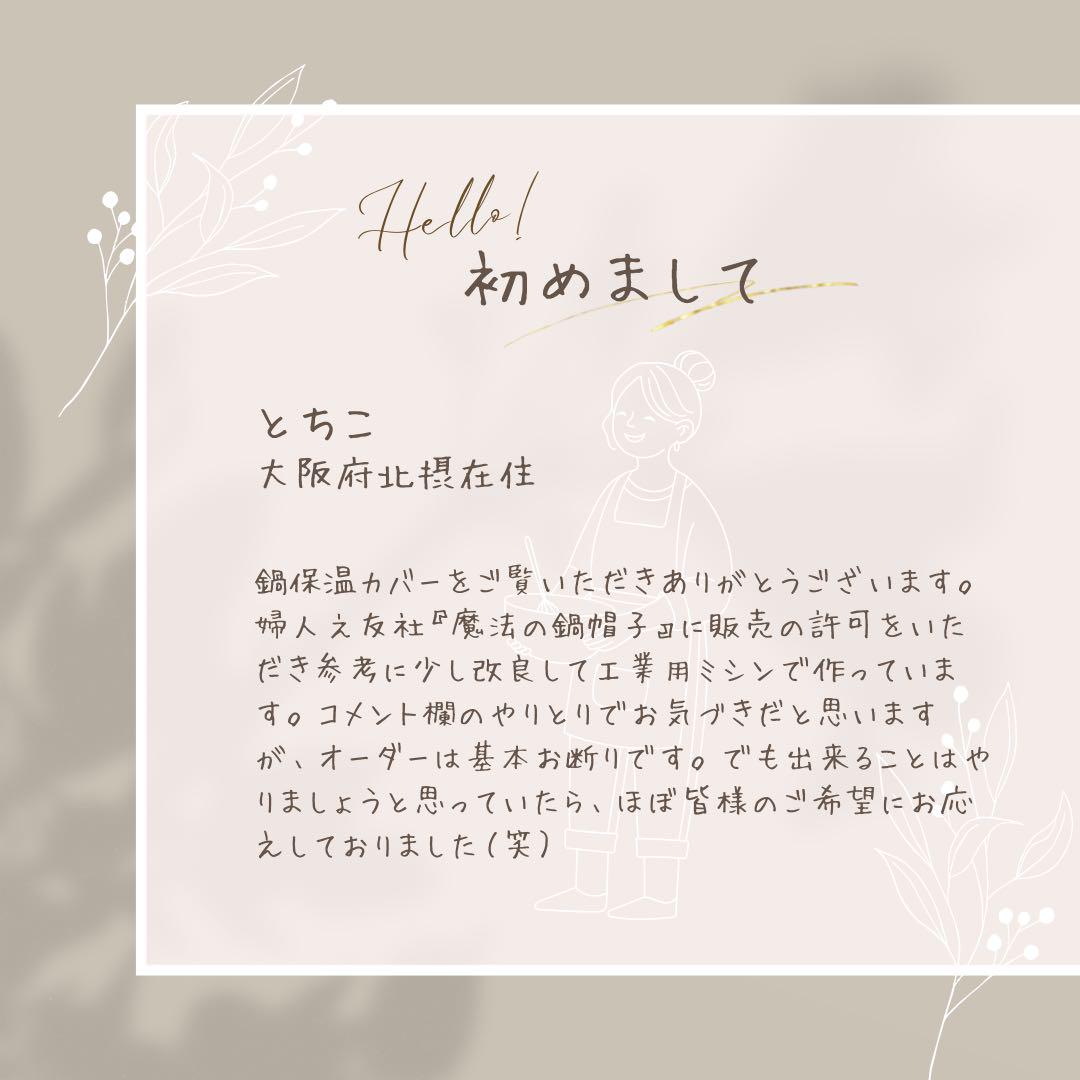 Hello!
初めまして
とちこ
大阪府北摂在住
鍋保温カバーをご覧いただきありがとうございます。
婦人え友社『魔法の鍋帽子』に販売の許可をいた
だき参考に少し改良して工業用ミシンで作っていま
す。コメント欄のやりとりでお気づきだと思います
が、オーダーは基本お断りです。でも出来ることはや
りましょうと思っていたら、ほぼ皆様のご希望にお応
えしておりました(笑)